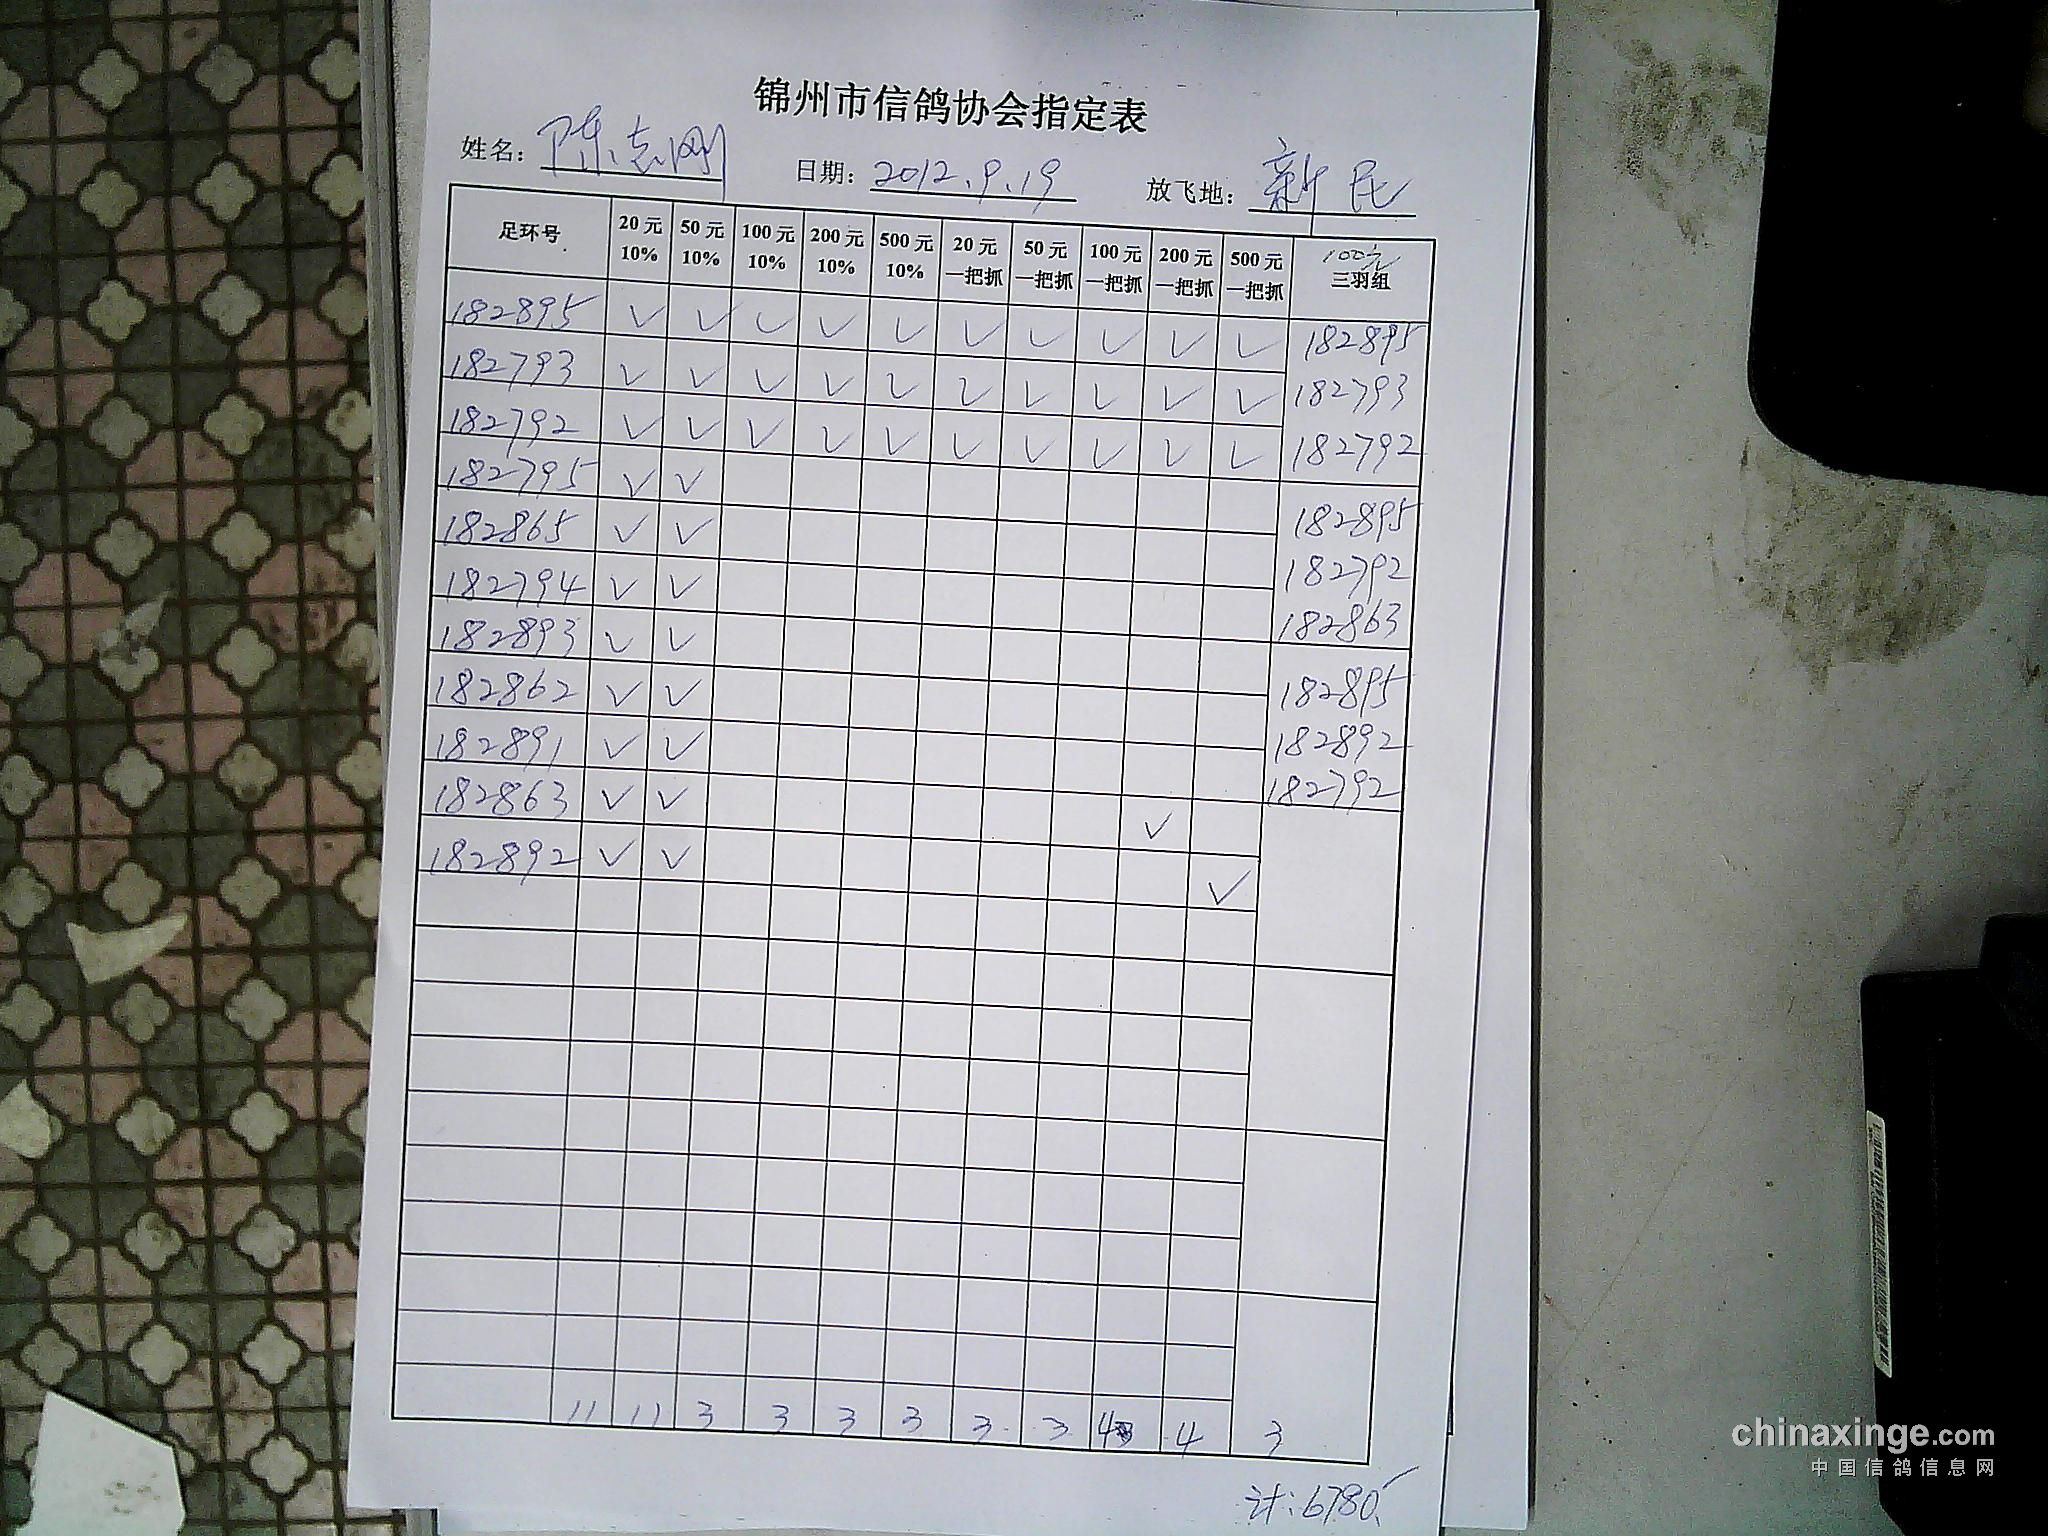 锦州市信鸽协会指定表
姓名：陈志刚 日期：2012.9.19 放飞地：新民
足环号 20元10% 50元10% 100元10% 200元10% 500元10% 20元一把抓 50元一把抓 100元一把抓 200元一把抓 500元一把抓 100元三羽组
182895 ✓ ✓ ✓ ✓ ✓ ✓ ✓ ✓ ✓ ✓ 182895
182793 ✓ ✓ ✓ ✓ ✓ ✓ ✓ ✓ ✓ ✓ 182793
182792 ✓ ✓ ✓ ✓ ✓ ✓ ✓ ✓ ✓ ✓ 182792
182795 ✓ ✓ 182895
182865 ✓ ✓ 182792
182794 ✓ ✓ 182863
182893 ✓ ✓ 182895
182862 ✓ ✓ 182892
182891 ✓ ✓ 182792
182863 ✓ ✓ ✓
182892 ✓ ✓ ✓
11 11 3 3 3 3 3 3 4 4 3
计：6780
chinaxinge.com
中国信鸽信息网